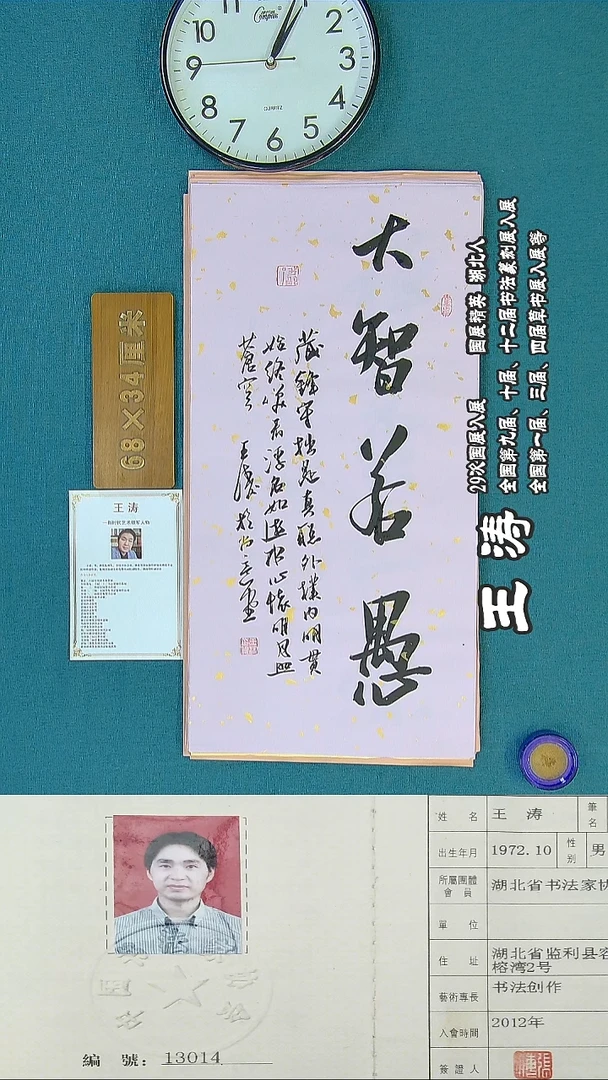 11
10
9
8
7
6
5
4
3
2
Compas
QUARTZ
大智若愚
藏锋守拙是真聪外朴内明贯
始终唯君浮名如逝水心怀明月照
苍穹
王涛
68×34厘米
王涛
国展精英 湖北人
29次国展入展
全国第九届、十届、十二届书法篆刻展入展
全国第一届、三届、四届草书展入展等
王涛
姓名
王涛
筆名
出生年月
1972.10
性别
男
所屬團體會員
湖北省书法家协
單位
住址
湖北省监利县容
榕湾2号
藝術專長
书法创作
入會時間
2012年
簽證人
編號：13014